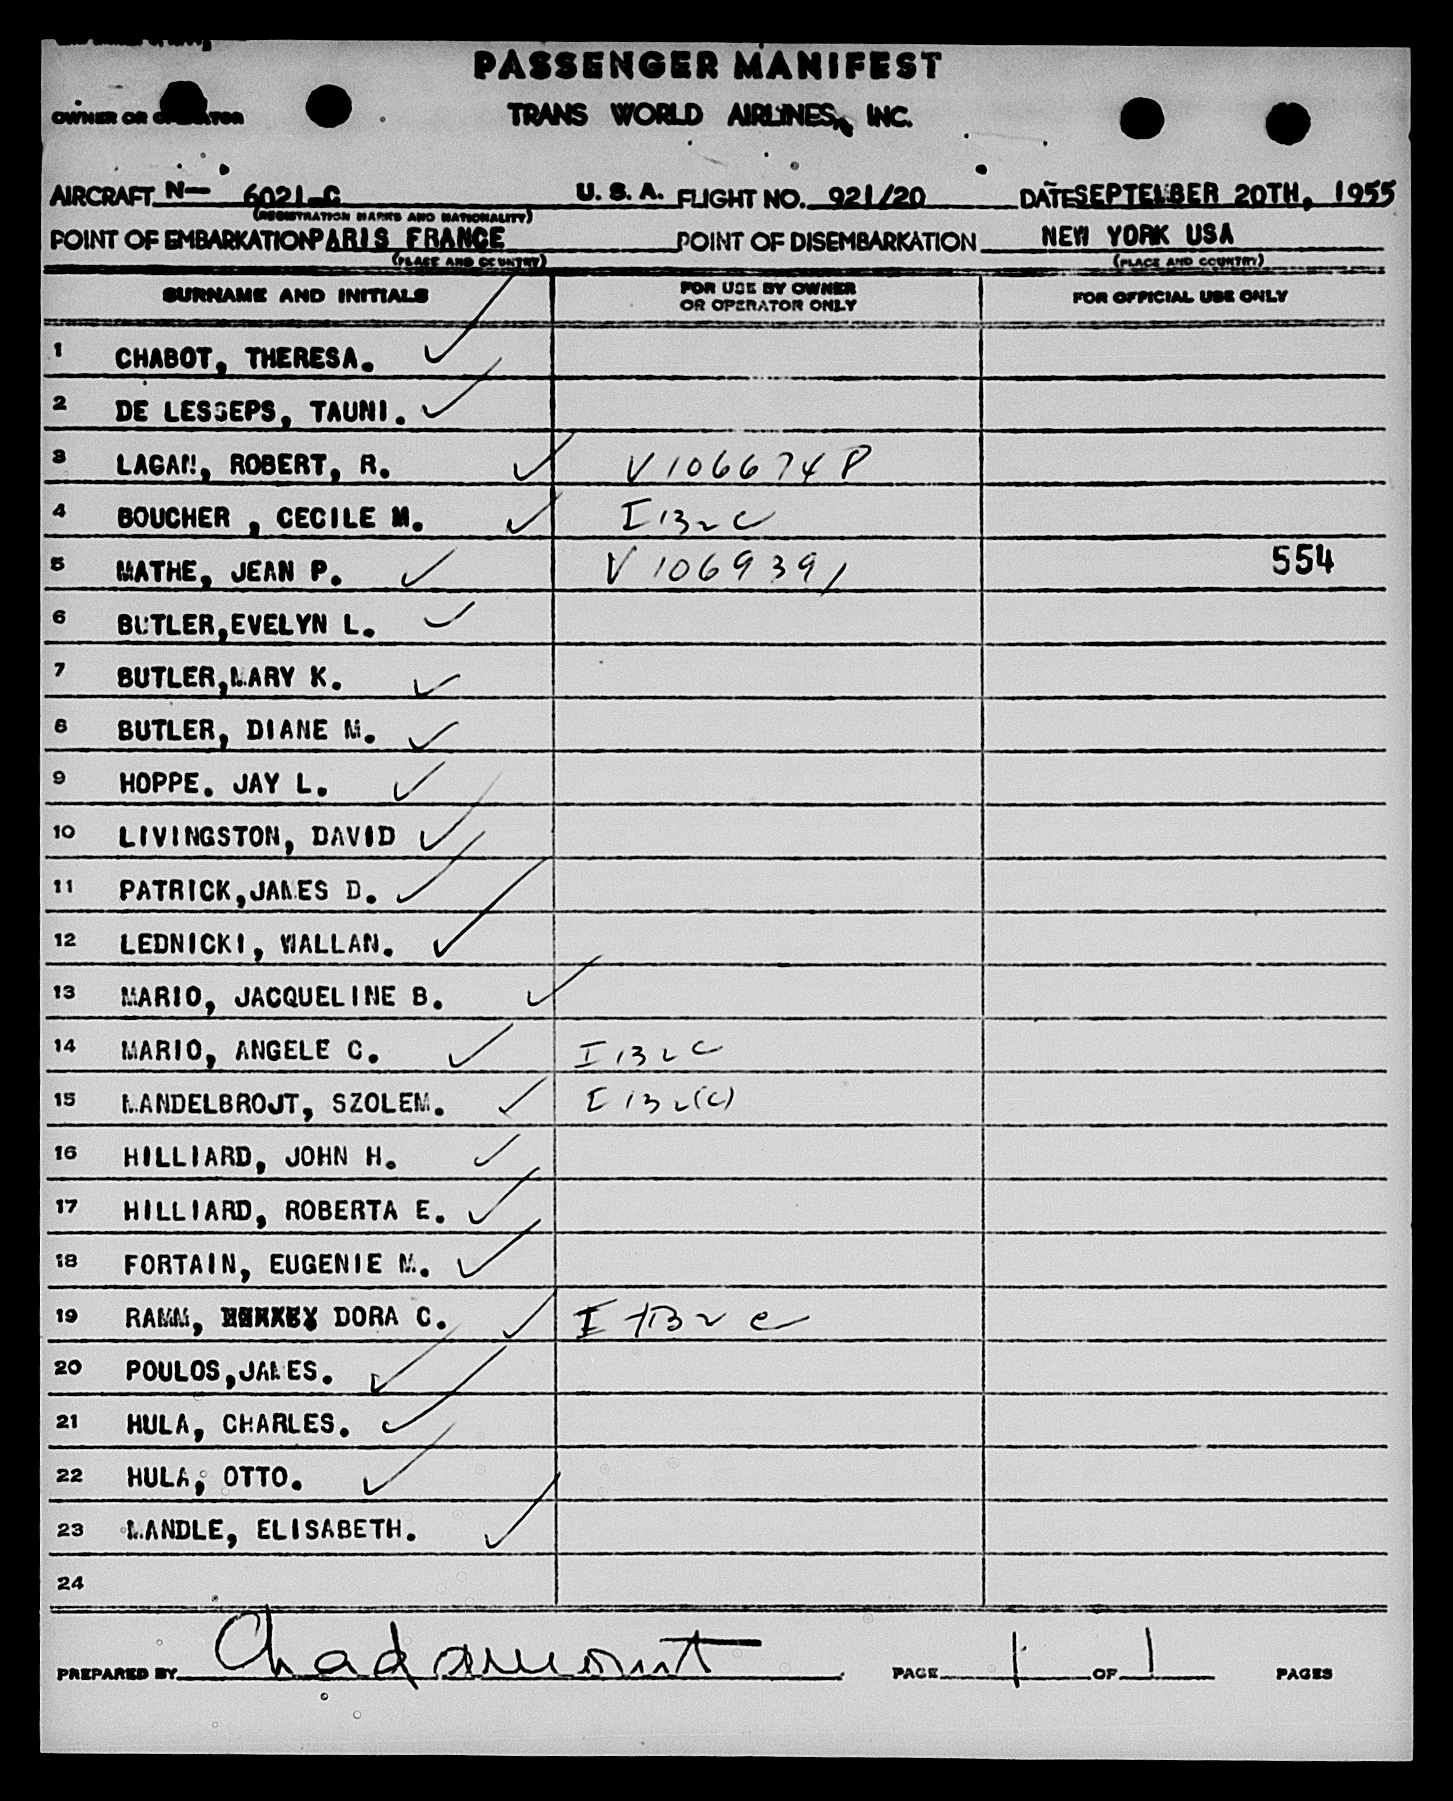 PASSENGER MANIFEST
OWNER OR OPERATOR TRANS WORLD AIRLINES, INC.
AIRCRAFT N— 6021-C U. S. A. FLIGHT NO. 921/20 DATE SEPTEMBER 20TH, 1955
(REGISTRATION MARKS AND NATIONALITY)
POINT OF EMBARKATION PARIS FRANCE POINT OF DISEMBARKATION NEW YORK USA
(PLACE AND COUNTRY) (PLACE AND COUNTRY)
SURNAME AND INITIALS FOR USE BY OWNER OR OPERATOR ONLY FOR OFFICIAL USE ONLY
1 CHABOT, THERESA.
2 DE LESSEPS, TAUNI.
3 LAGAN, ROBERT, R. V 106674 P
4 BOUCHER , CECILE M. I 132 C
5 MATHE, JEAN P. V 1069391 554
6 BUTLER,EVELYN L.
7 BUTLER,MARY K.
8 BUTLER, DIANE M.
9 HOPPE. JAY L.
10 LIVINGSTON, DAVID
11 PATRICK,JAMES D.
12 LEDNICKI, WALLAN.
13 MARIO, JACQUELINE B.
14 MARIO, ANGELE C. I 132 C
15 MANDELBROJT, SZOLEM. I 132(C)
16 HILLIARD, JOHN H.
17 HILLIARD, ROBERTA E.
18 FORTAIN, EUGENIE M.
19 RAMM, DORA C. I 132 C
20 POULOS,JAMES.
21 HULA, CHARLES.
22 HULA, OTTO.
23 MANDLE, ELISABETH.
24
PREPARED BY PAGE 1 OF 1 PAGES